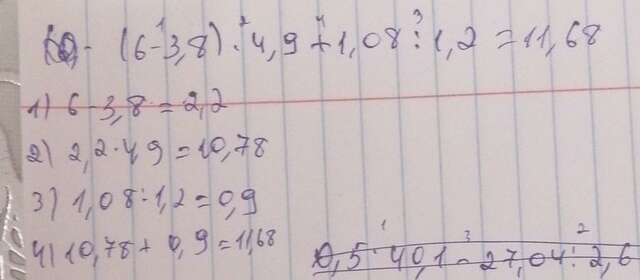 (6-3,8)·4,9+1,08:1,2=11,68
1) 6-3,8=2,2
2) 2,2·4,9=10,78
3) 1,08:1,2=0,9
4) 10,78+0,9=11,68
0,5·40,1-27,04:2,6